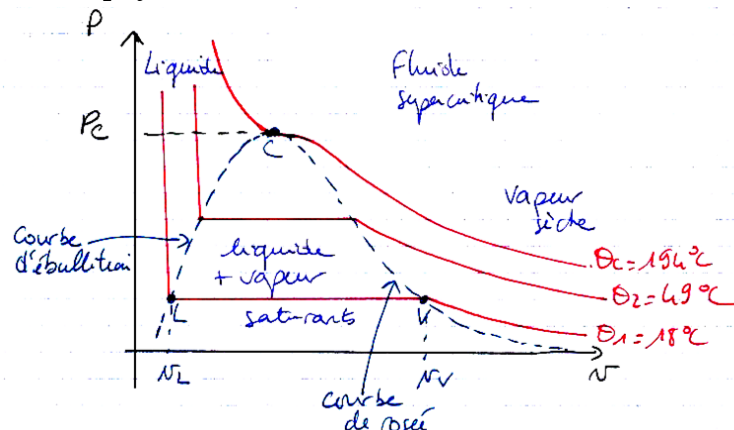 P
Liquide
Fluide
supercritique
Pc
C
vapeur
sèche
courbe
d'ébullition
liquide
+ vapeur
saturants
θc = 194°C
θ2 = 49°C
θ1 = 18°C
L
V
vL
vV
v
courbe
de rosée